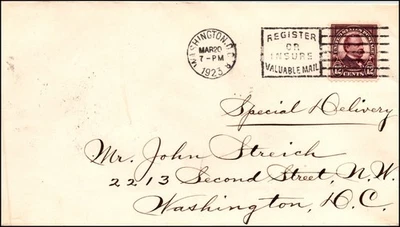 WASHINGTON, D.C.
MAR 20
7-PM
1923
REGISTER
OR
INSURE
VALUABLE MAIL
12 CENTS 12
Special Delivery
Mr. John Streich
2213 Second Street, N.W.
Washington, D.C.